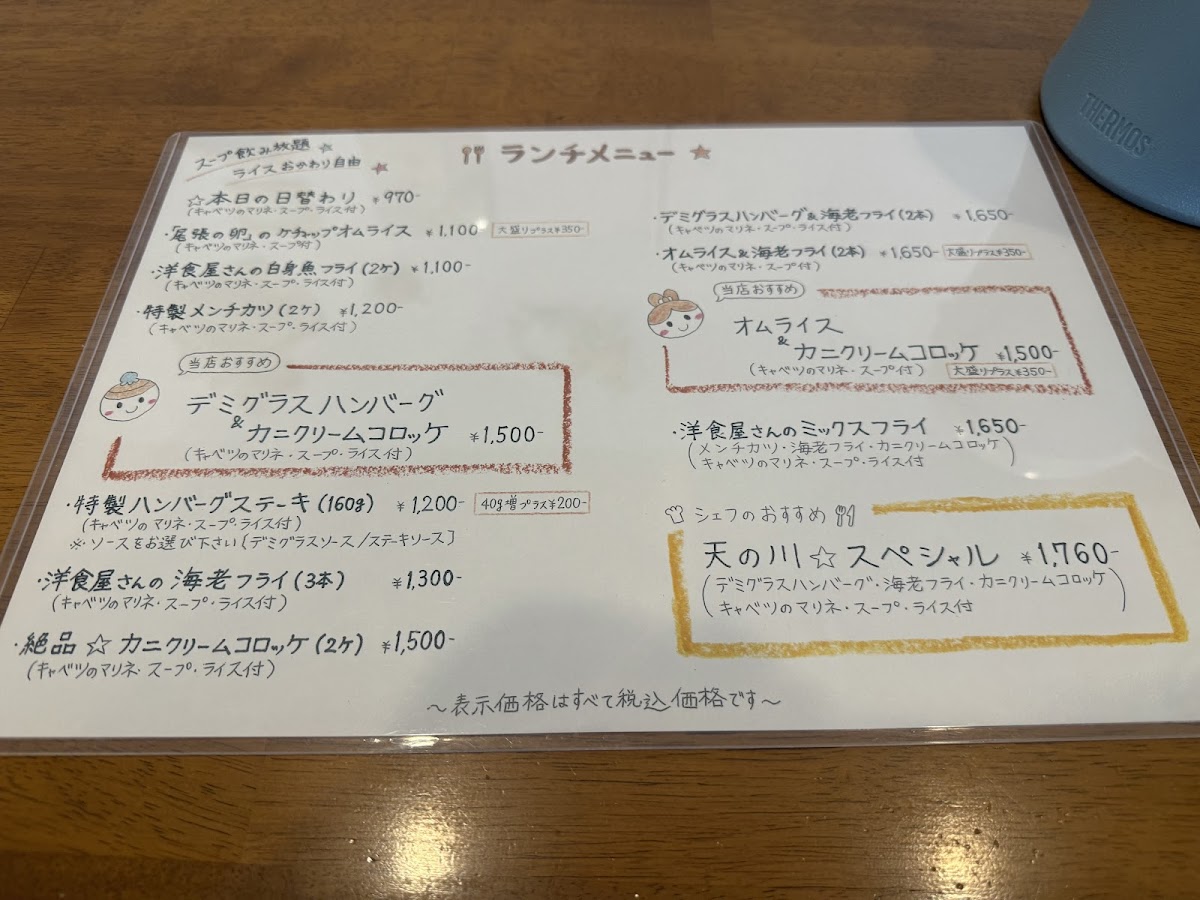 スープ飲み放題☆
ライスおかわり自由★
ランチメニュー★
☆本日の日替わり ¥970-
(キャベツのマリネ・スープ・ライス付)
・「尾張の卵」のケチャップオムライス ¥1,100 大盛りプラス¥350-
(キャベツのマリネ・スープ付)
・洋食屋さんの白身魚フライ(2ケ) ¥1,100-
(キャベツのマリネ・スープ・ライス付)
・特製メンチカツ(2ケ) ¥1,200-
(キャベツのマリネ・スープ・ライス付)
当店おすすめ
デミグラスハンバーグ
&
カニクリームコロッケ ¥1,500-
(キャベツのマリネ・スープ・ライス付)
・特製ハンバーグステーキ(160g) ¥1,200- 40g増プラス¥200-
(キャベツのマリネ・スープ・ライス付)
※・ソースをお選び下さい[デミグラスソース/ステーキソース]
・洋食屋さんの海老フライ(3本) ¥1,300-
(キャベツのマリネ・スープ・ライス付)
・絶品☆カニクリームコロッケ(2ケ) ¥1,500-
(キャベツのマリネ・スープ・ライス付)
・デミグラスハンバーグ&海老フライ(2本) ¥1,650-
(キャベツのマリネ・スープ・ライス付)
・オムライス&海老フライ(2本) ¥1,650- 大盛りプラス¥350-
(キャベツのマリネ・スープ付)
当店おすすめ
オムライス
&
カニクリームコロッケ ¥1,500-
(キャベツのマリネ・スープ付) 大盛りプラス¥350-
・洋食屋さんのミックスフライ ¥1,650-
(メンチカツ・海老フライ・カニクリームコロッケ
キャベツのマリネ・スープ・ライス付)
シェフのおすすめ
天の川☆スペシャル ¥1,760-
(デミグラスハンバーグ・海老フライ・カニクリームコロッケ
キャベツのマリネ・スープ・ライス付)
～表示価格はすべて税込価格です～
THERMOS